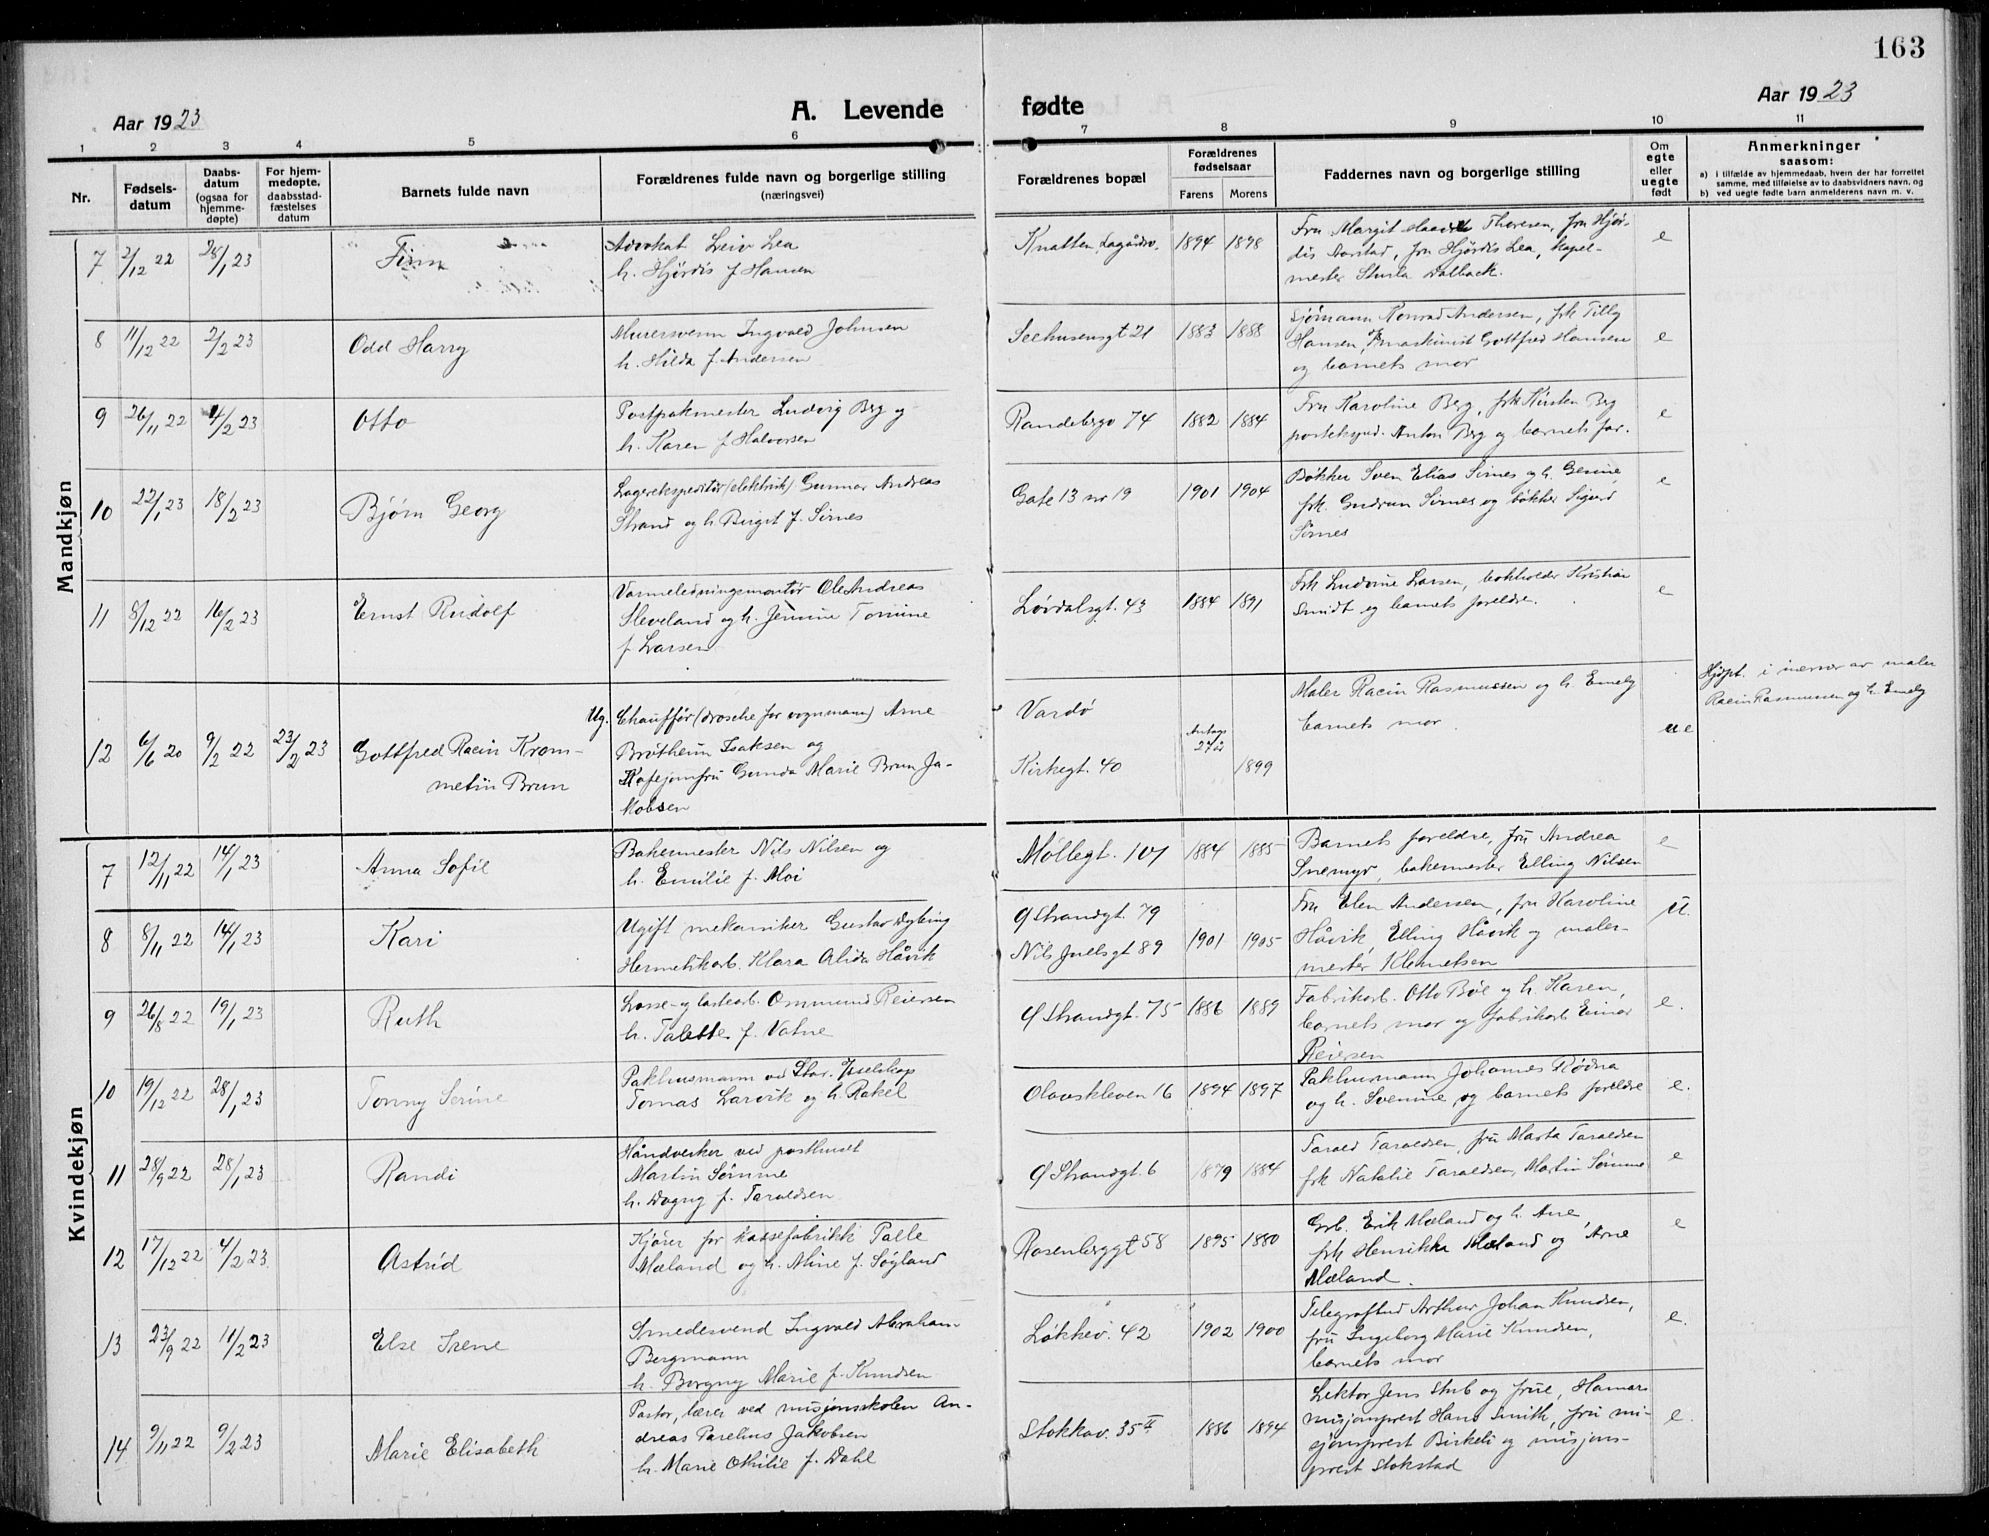 163
Aar 1923
A. Levende fødte
Aar 1923
1 2 3 4 5 6 7 8 9 10 11
Nr.
Fødsels-
datum
Daabs-
datum
(ogsaa for
hjemme-
døpte)
For hjem-
medøpte,
daabsstad-
fæstelses
datum
Barnets fulde navn
Forældrenes fulde navn og borgerlige stilling
(næringsvei)
Forældrenes bopæl
Forældrenes
fødselsaar
Farens Morens
Faddernes navn og borgerlige stilling
Om
egte
eller
uegte
født
Anmerkninger
saasom:
a) i tilfælde av hjemmedaab, hvem der har forrettet
samme, med tilføielse av to daabsvidners navn, og
b) ved uegte fødte barn anmelderens navn m. v.
Mandkjøn
7 2/12 22 28/1 23 Finn
Advokat Leiv Lea
h. Hjørdis f. Hansen
Knatten, Lagårdsv. 1894 1898
Fru Margit Thoresen, fru Hjør-
dis Aarstad, fru Hjørdis Lea, kapel-
mester Sturla Dalback.
e
8 11/12 22 2/2 23 Odd Harry
Murersvenn Ingvald Johnsen
h. Hilda f. Andersen
Seehusensgt 21 1883 1888
Sjømann Konrad Andersen, frk Tilly
Hansen, maskinist Gottfred Hansen
og barnets mor
e
9 26/11 22 4/2 23 Otto
Postpakmester Ludvig Berg og
h. Karen f. Halvorsen
Randebergv 74 1882 1884
Fru Karoline Berg, frk Kirsten Berg
postekspd. Anton Berg og barnets far.
e
10 22/1 23 18/2 23 Bjørn Georg
Lagerekspeditør (elektrik) Gunnar Andreas
Strand og h. Birgit f. Sirnes
Gate 13 nr 19 1901 1904
Bøkker Sven Elias Sirnes og h. Gerine,
frk. Gudrun Sirnes og bøkker Sigurd
Sirnes
e
11 8/12 22 16/2 23 Ernst Rudolf
Varmeledningsmontør Ole Andreas
Sleveland og h. Jennine Tomine
f. Larsen
Løvdalsgt. 43 1884 1891
Frk Ludvine Larsen, bokholder Kristian
Smidt og barnets foreldre.
e
12 6/6 20 9/2 22 23/2 23 Gottfred Racin Krom-
metiin Brun
Ug. Chauffør (drosche for vognmann) Arne
Brotheim Isaksen og
Kafejomfru Gunda Marie Brun Ja-
kobsen
Vardø
Kirkegt. 40
Antag. 27 år
1899
Maler Racin Rasmussen og h. Emely
barnets mor
ue
Hjdpt. i nærvær av maler
Racin Rasmussen og h. Emely
Kvindekjøn
7 12/11 22 14/1 23 Anna Sofie
Bakermester Nils Nilsen og
h. Emilie f. Moi
Møllegt. 101 1884 1885
Barnets foreldre, fru Andrea
Snemyr, bakermester Elling Nilsen
e
8 8/11 22 14/1 23 Kari
Ugift mekaniker Gustav Dybing
Hermetikarb. Klara Alida Håvik
Ø Strandgt. 79
Nils Juelsgt 89 1901 1905
Fru Elen Andersen, fru Karoline
Håvik, Elling Håvik og maler-
mester Klemetsen
u.
9 26/8 22 19/1 23 Ruth
Losse- og lastearb. Ommund Reiersen
h. Talette f. Vatne
Ø Strandgt. 75 1886 1889
Fabrikarb. Otto Bøe og h. Karen,
barnets mor og fabrikarb Einar
Reiersen
e.
10 19/12 22 28/1 23 Tonny Serine
Pakhusmann ved Stav.
Tomas Larvik og h. Rakel
Olavskleven 16 1894 1897
Pakhusmann Johannes Rødna
og h. Svenine, og barnets foreldre
e.
11 28/9 22 28/1 23 Randi
Håndverker ved posthuset
Martin Sømme
h. Dagny f. Taraldsen
Ø Strandgt. 6 1879 1884
Tarald Taraldsen, fru Marta Taraldsen
frk Natalie Taraldsen, Martin Sømme
e
12 17/12 22 4/2 23 Astrid
Kjører for kassefabrikk Palle
Mæland og h. Aline f. Søyland
Rosenberggt 58 1895 1880
Grb. Erik Mæland og h. Ane,
frk Henrikka Mæland og Arne
Mæland.
e
13 23/9 22 11/2 23 Else Irene
Smedesvend Ingvald Abraham
Bergmann
h. Borgny Marie f. Knudsen
Løkkev. 42 1902 1900
Telegrafbud Arthur Johan Knudsen,
fru Ingeborg Marie Knudsen,
barnets mor
e.
14 9/11 22 9/2 23 Marie Elisabeth
Pastor, lærer ved misjonsskolen An-
dreas Parelius Jakobsen
h. Marie Otilie f. Dahl
Stokkav. 35 II 1886 1894
Lektor Jens Stub og frue, Hamars
misjonsprest Hans Smith, fru mi-
sjonsprest Birkeli og misjons-
prest Stokstad
e.